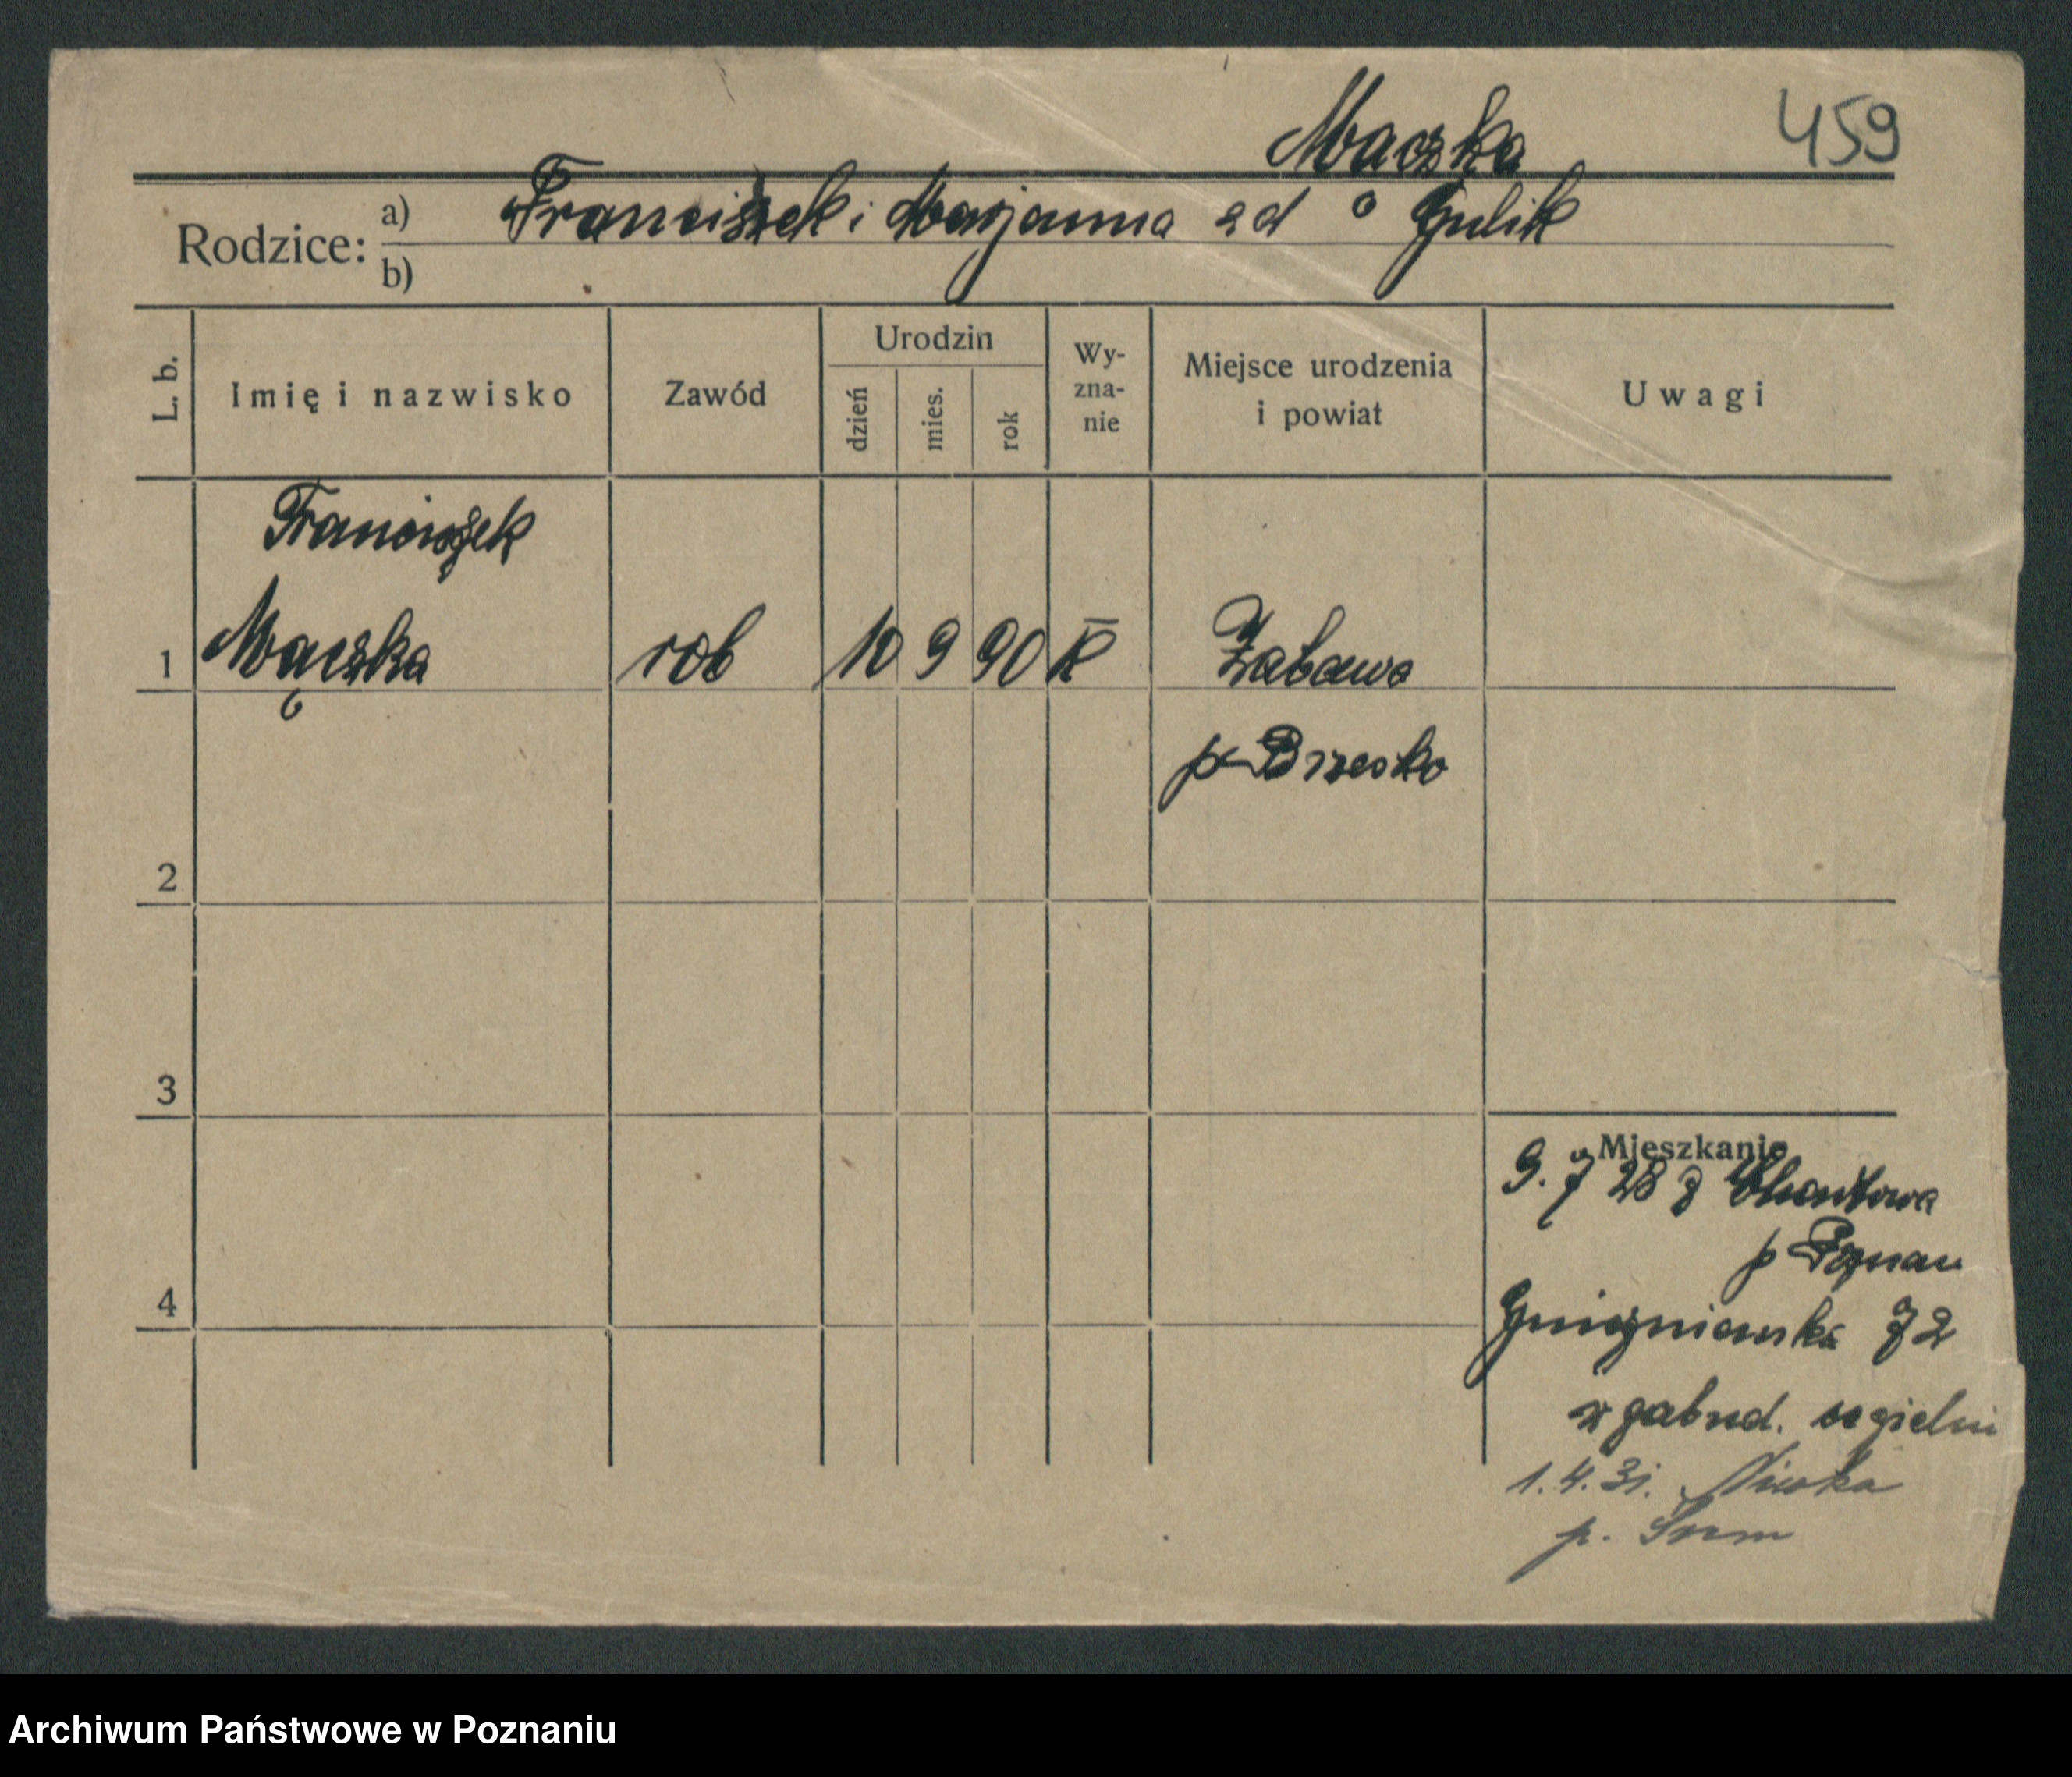 Maczka 459
Rodzice: a) Franciszek i Marjanna zd o Gulik
b)
L. b. Imię i nazwisko Zawód Urodzin dzień mies. rok Wy-zna-nie Miejsce urodzenia i powiat Uwagi
Franciszek
1 Mączka rob 10 9 90 K Zabawa
p Brzesko
2
3
Mieszkanie
9. 7 28 z
p Poznan
4
Gnieźnieńska 72
w zabud. cegielni
1.4.31. Niwka
p. Śrem
Archiwum Państwowe w Poznaniu